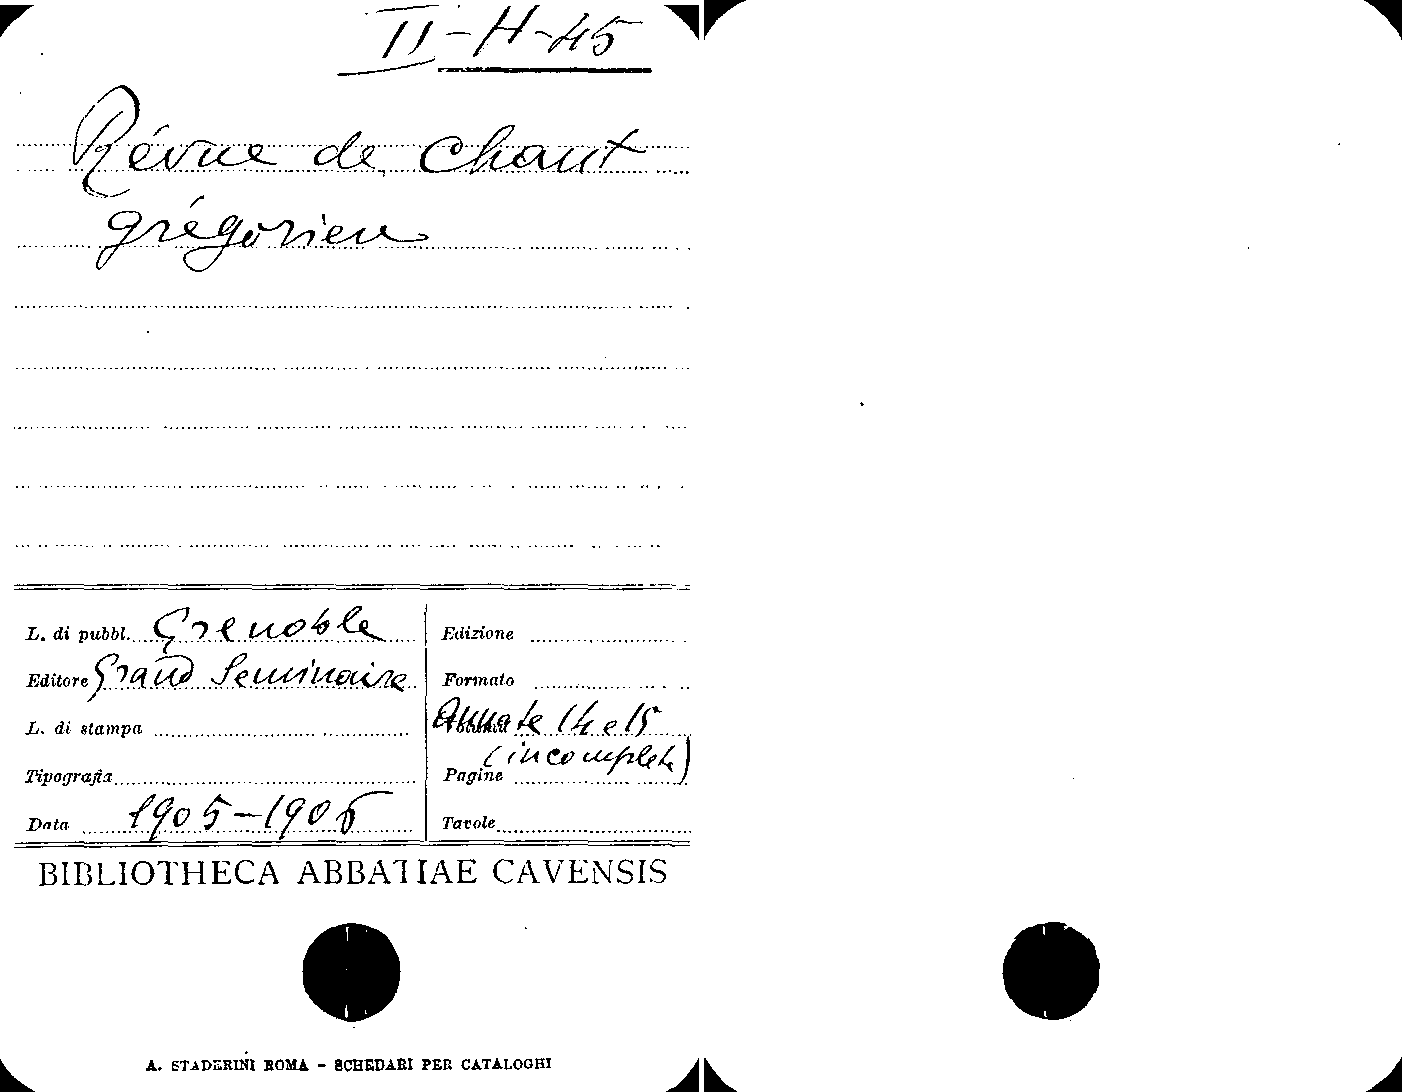 II-H-45
Révue de Chant
grégorien
L. di pubbl. Grenoble
Editore Grand Seminaire
L. di stampa
Tipografia
Data 1905-1906
Edizione
Formato
Volumi Annate 14 e 15
(incomplete)
Pagine
Tavole
BIBLIOTHECA ABBATIAE CAVENSIS
A. STADERINI ROMA - SCHEDARI PER CATALOGHI